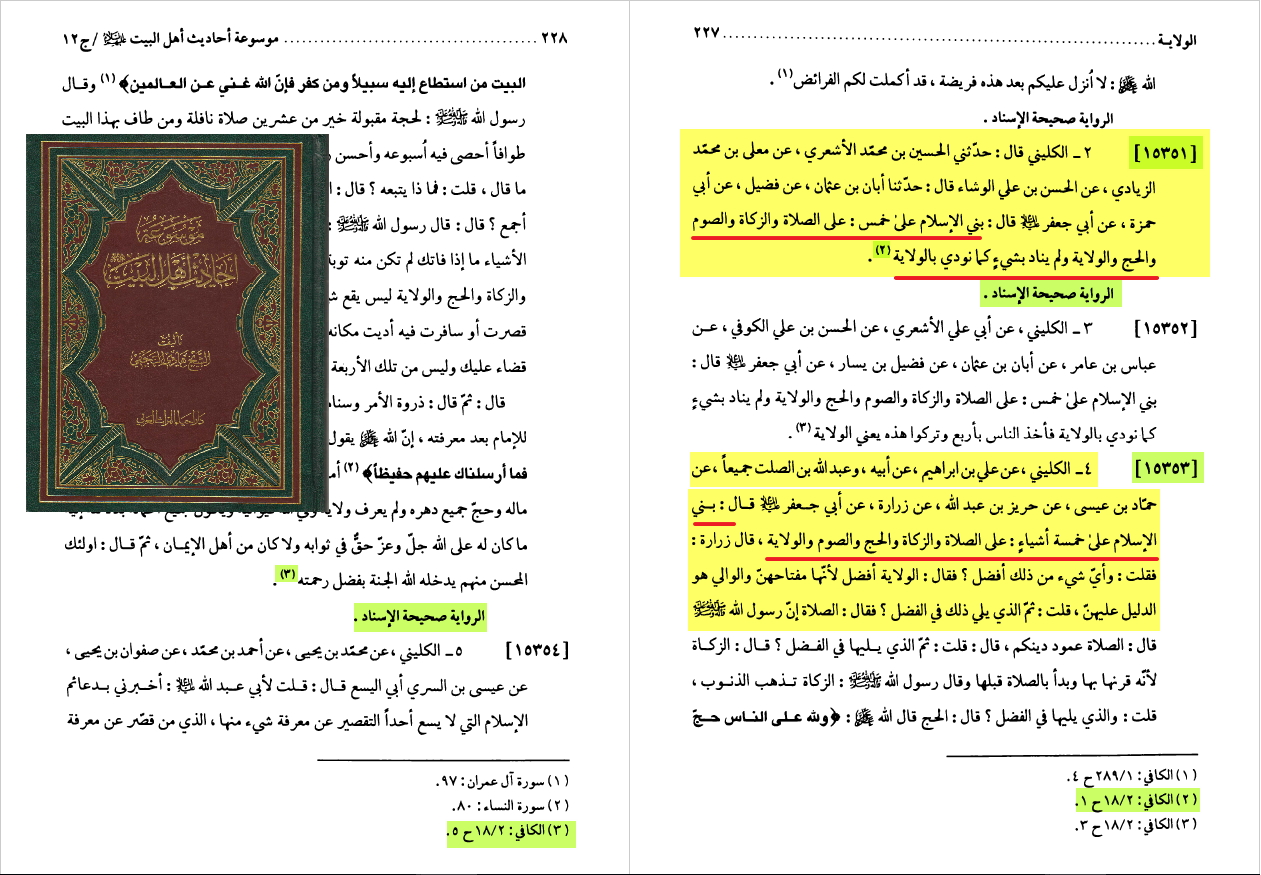 الولايـة ........................................................................ ٢٢٧
الله ﷿ : لا اُنزل عليكم بعد هذه فريضة ، قد أكملت لكم الفرائض(١) .
الرواية صحيحة الإسناد .
[١٥٣٥١] ٢ ـ الكليني قال : حدّثني الحسين بن محمّد الأشعري ، عن معلى بن محمّد
الزيادي ، عن الحسن بن علي الوشاء قال : حدّثنا أبان بن عثمان ، عن فضيل ، عن أبي
حمزة ، عن أبي جعفر ﵇ قال : بني الإسلام علىٰ خمس : على الصلاة والزكاة والصوم
والحج والولاية ولم يناد بشيءٍ كما نودي بالولاية(٢) .
الرواية صحيحة الإسناد .
[١٥٣٥٢] ٣ ـ الكليني ، عن أبي علي الأشعري ، عن الحسن بن علي الكوفي ، عـن
عباس بن عامر ، عن أبان بن عثمان ، عن فضيل بن يسار ، عن أبي جعفر ﵇ قال :
بني الإسلام علىٰ خمس : على الصلاة والزكاة والصوم والحج والولاية ولم يناد بشيءٍ
كما نودي بالولاية فأخذ الناس بأربع وتركوا هذه يعني الولاية(٣) .
[١٥٣٥٣] ٤ ـ الكليني ، عن علي بن ابراهيم ، عن أبيه ، وعبد الله بن الصلت جميعاً ، عن
حمّاد بن عيسى ، عن حريز بن عبد الله ، عن زرارة ، عن أبي جـعفر ﵇ قـال : بـني
الإسلام علىٰ خمسة أشياءٍ : على الصلاة والزكاة والحج والصوم والولاية ، قال زرارة :
فقلت : وأيّ شيء من ذلك أفضل ؟ فقال : الولاية أفضل لأنّها مفتاحهنّ والوالي هو
الدليل عليهنّ ، قلت : ثمّ الذي يلي ذلك في الفضل ؟ فقال : الصلاة إنّ رسول الله ﷺ
قال : الصلاة عمود دينكم ، قال : قلت : ثمّ الذي يـليها في الفـضل ؟ قـال : الزكـاة
لأنّه قرنها بها وبدأ بالصلاة قبلها وقال رسول الله ﷺ : الزكاة تـذهب الذنـوب ،
قلت : والذي يليها في الفضل ؟ قال : الحج قال الله ﷿ : ﴿ولله عـلى النـاس حـجّ
(١) الكافي : ٢٨٩/١ ح ٤.
(٢) الكافي : ١٨/٢ ح ١.
(٣) الكافي : ١٨/٢ ح ٣.
٢٢٨ ........................................... موسوعة أحاديث أهل البيت ﵈ / ج ١٢
البيت من استطاع إليه سبيلاً ومن كفر فإنّ الله غـني عـن العـالمين﴾(١) وقـال
رسول الله ﷺ : لحجة مقبولة خير من عشرين صلاة نافلة ومن طاف بهذا البيت
طوافاً أحصى فيه اُسبوعه وأحسن
ما قال ، قلت : فماذا يتبعه ؟ قال :
أجمع ؟ قال : قال رسول الله ﷺ :
الأشياء ما إذا فاتك لم تكن منه توبة
والزكاة والحج والولاية ليس يقع
قصرت أو سافرت فيه أديت مكانه
قضاء عليك وليس من تلك الأربعة
قال : ثمّ قال : ذروة الأمر وسنامه
للإمام بعد معرفته ، إنّ الله ﷿ يقول
فما أرسلناك عليهم حفيظاً﴾(٢)
ماله وحجّ جميع دهره ولم يعرف
ما كان له على الله جلّ وعزّ حقٌّ في ثوابه ولا كان من أهل الإيمـان ، ثمّ قـال : اولئك
المحسن منهم يدخله الله الجنة بفضل رحمته(٣) .
الرواية صحيحة الإسناد .
[١٥٣٥٤] ٥ ـ الكليني ، عن محمّد بن يحيى ، عن أحمد بن محمّد ، عن صفوان بن يحيى ،
عن عيسى بن السري أبي اليسع قـال : قـلت لأبي عـبد الله ﵇ : أخـبرني بـدعائم
الإسلام التي لا يسع أحداً التقصير عن معرفة شيء منها ، الذي من قصّر عن معرفة
(١) سورة آل عمران : ٩٧.
(٢) سورة النساء : ٨٠.
(٣) الكافي : ١٨/٢ ح ٥.
موسوعة
أحاديث أهل البيت
تأليف
الشيخ هادي النجفي